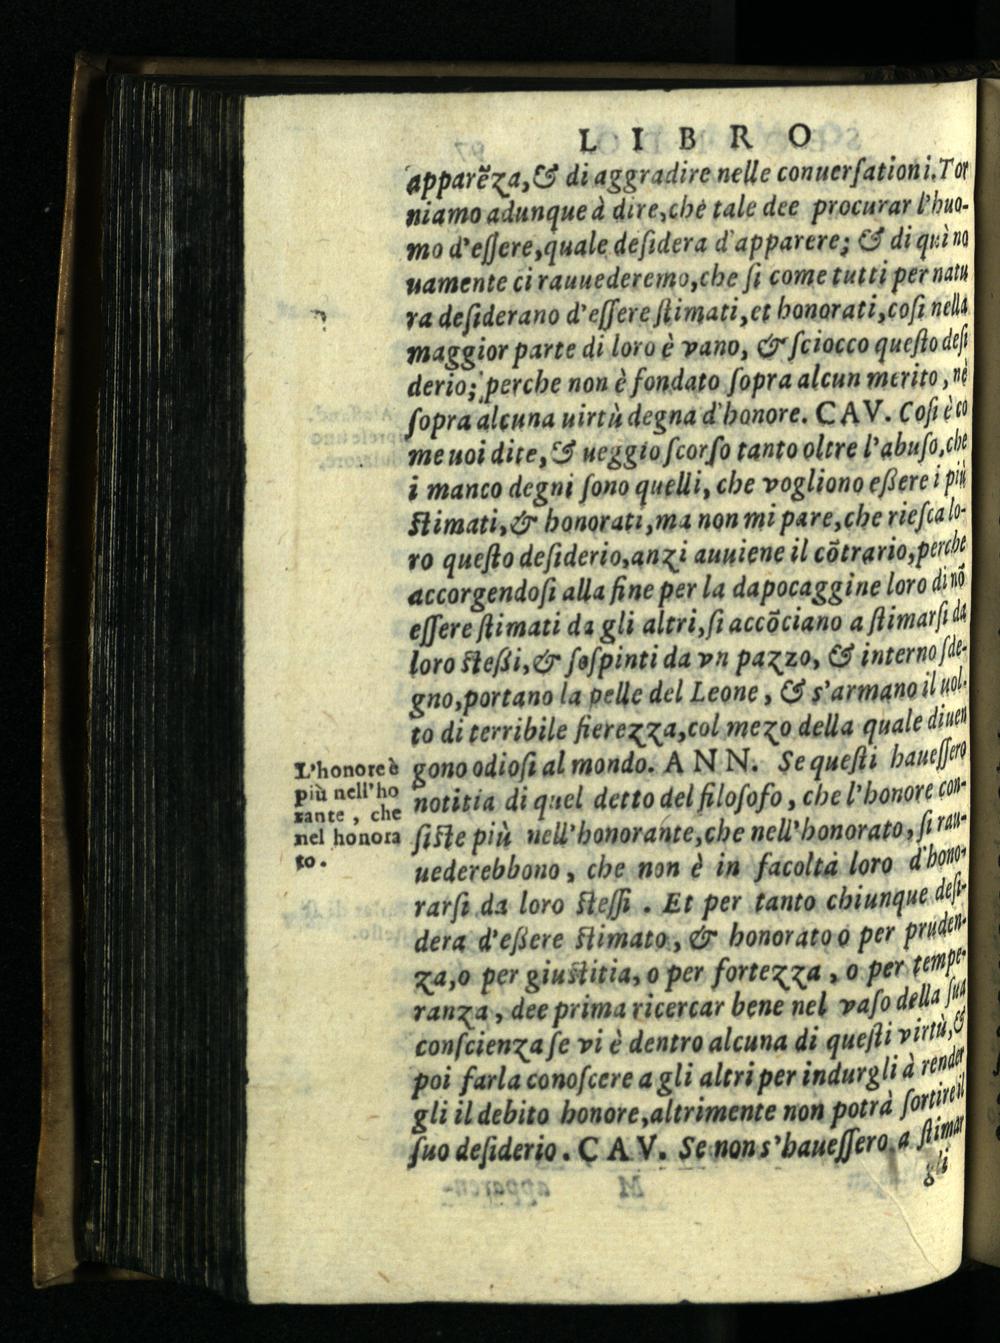 LIBRO
apparẽza,& di aggradire nelle conuersationi.Tor
niamo adunque à dire,che tale dee procurar l'huo-
mo d'essere,quale desidera d'apparere; & di quì no
uamente ci rauuederemo,che si come tutti per natu
ra desiderano d'essere stimati,et honorati,cosi nella
maggior parte di loro è vano, & sciocco questo desi
derio; perche non è fondato sopra alcun merito, nè
sopra alcuna uirtù degna d'honore. CAV. Cosi è co
me uoi dite,& ueggio scorso tanto oltre l'abuso,che
i manco degni sono quelli, che vogliono eßere i più
stimati,& honorati,ma non mi pare,che riesca lo-
ro questo desiderio,anzi auuiene il cõtrario,perche
accorgendosi alla fine per la dapocaggine loro di nõ
essere stimati da gli altri,si accõciano a stimarsi da
loro steßi,& sospinti da vn pazzo, & interno sde-
gno,portano la pelle del Leone, & s'armano il uol-
to di terribile fierezza,col mezo della quale diuen
gono odiosi al mondo. ANN. Se questi hauessero
notitia di quel detto del filosofo, che l'honore con-
siste più nell'honorante,che nell'honorato, si rau-
uederebbono, che non è in facoltà loro d'hono-
rarsi da loro stessi. Et per tanto chiunque desi-
dera d'eßere stimato, & honorato o per pruden-
za,o per giustitia, o per fortezza, o per tempe-
ranza, dee prima ricercar bene nel vaso della sua
conscienza se vi è dentro alcuna di questi virtù,&
poi farla conoscere a gli altri per indurgli à render
gli il debito honore,altrimente non potrà sortire il
suo desiderio. CAV. Se non s'hauessero a stimar
gli
L'honore è
più nell'ho
rante, che
nel honora
to.